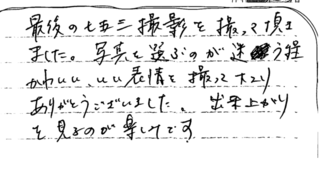 最後の七五三撮影を撮って頂き
ました。写真を選ぶのが迷う程
かわいい、いい表情を撮って下さり
ありがとうございました。出来上がり
を見るのが楽しみです